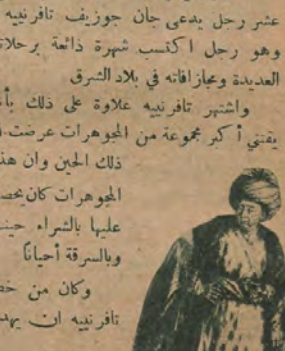 عشر رجل يدعى جان جوزيف تافرنييه
وهو رجل اكتسب شهرة ذائعة برحلاته
العديدة ومجازفاته في بلاد الشرق
واشتهر تافرنييه علاوة على ذلك
يقتني أكبر مجموعة من المجوهرات عرضت
ذلك الحين وان هذه
المجوهرات كان يحصل
عليها بالشراء
وبالسرقة أحيانا
وكان من
تافرنييه ان